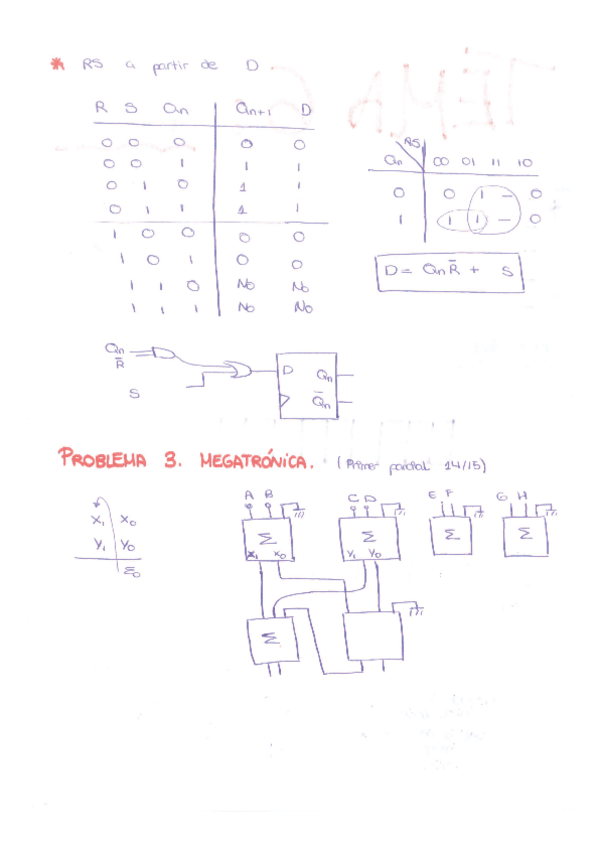 * RS a partir de D
R S Qn Qn+1 D
0 0 0 0 0
0 0 1 1 1
0 1 0 1 1
0 1 1 1 1
1 0 0 0 0
1 0 1 0 0
1 1 0 No No
1 1 1 No No
RS
Qn 00 01 11 10
0 0 1 – 0
1 1 1 – 0
D = QnR̅ + S
Qn
R̅
S
D Qn
Q̅n
PROBLEMA 3. MEGATRÓNICA. (Primer parcial 14/15)
A B C D E F G H
X1 X0
Y1 Y0
Σ0
Σ Σ Σ Σ
X1 X0 Y1 Y0
Σ